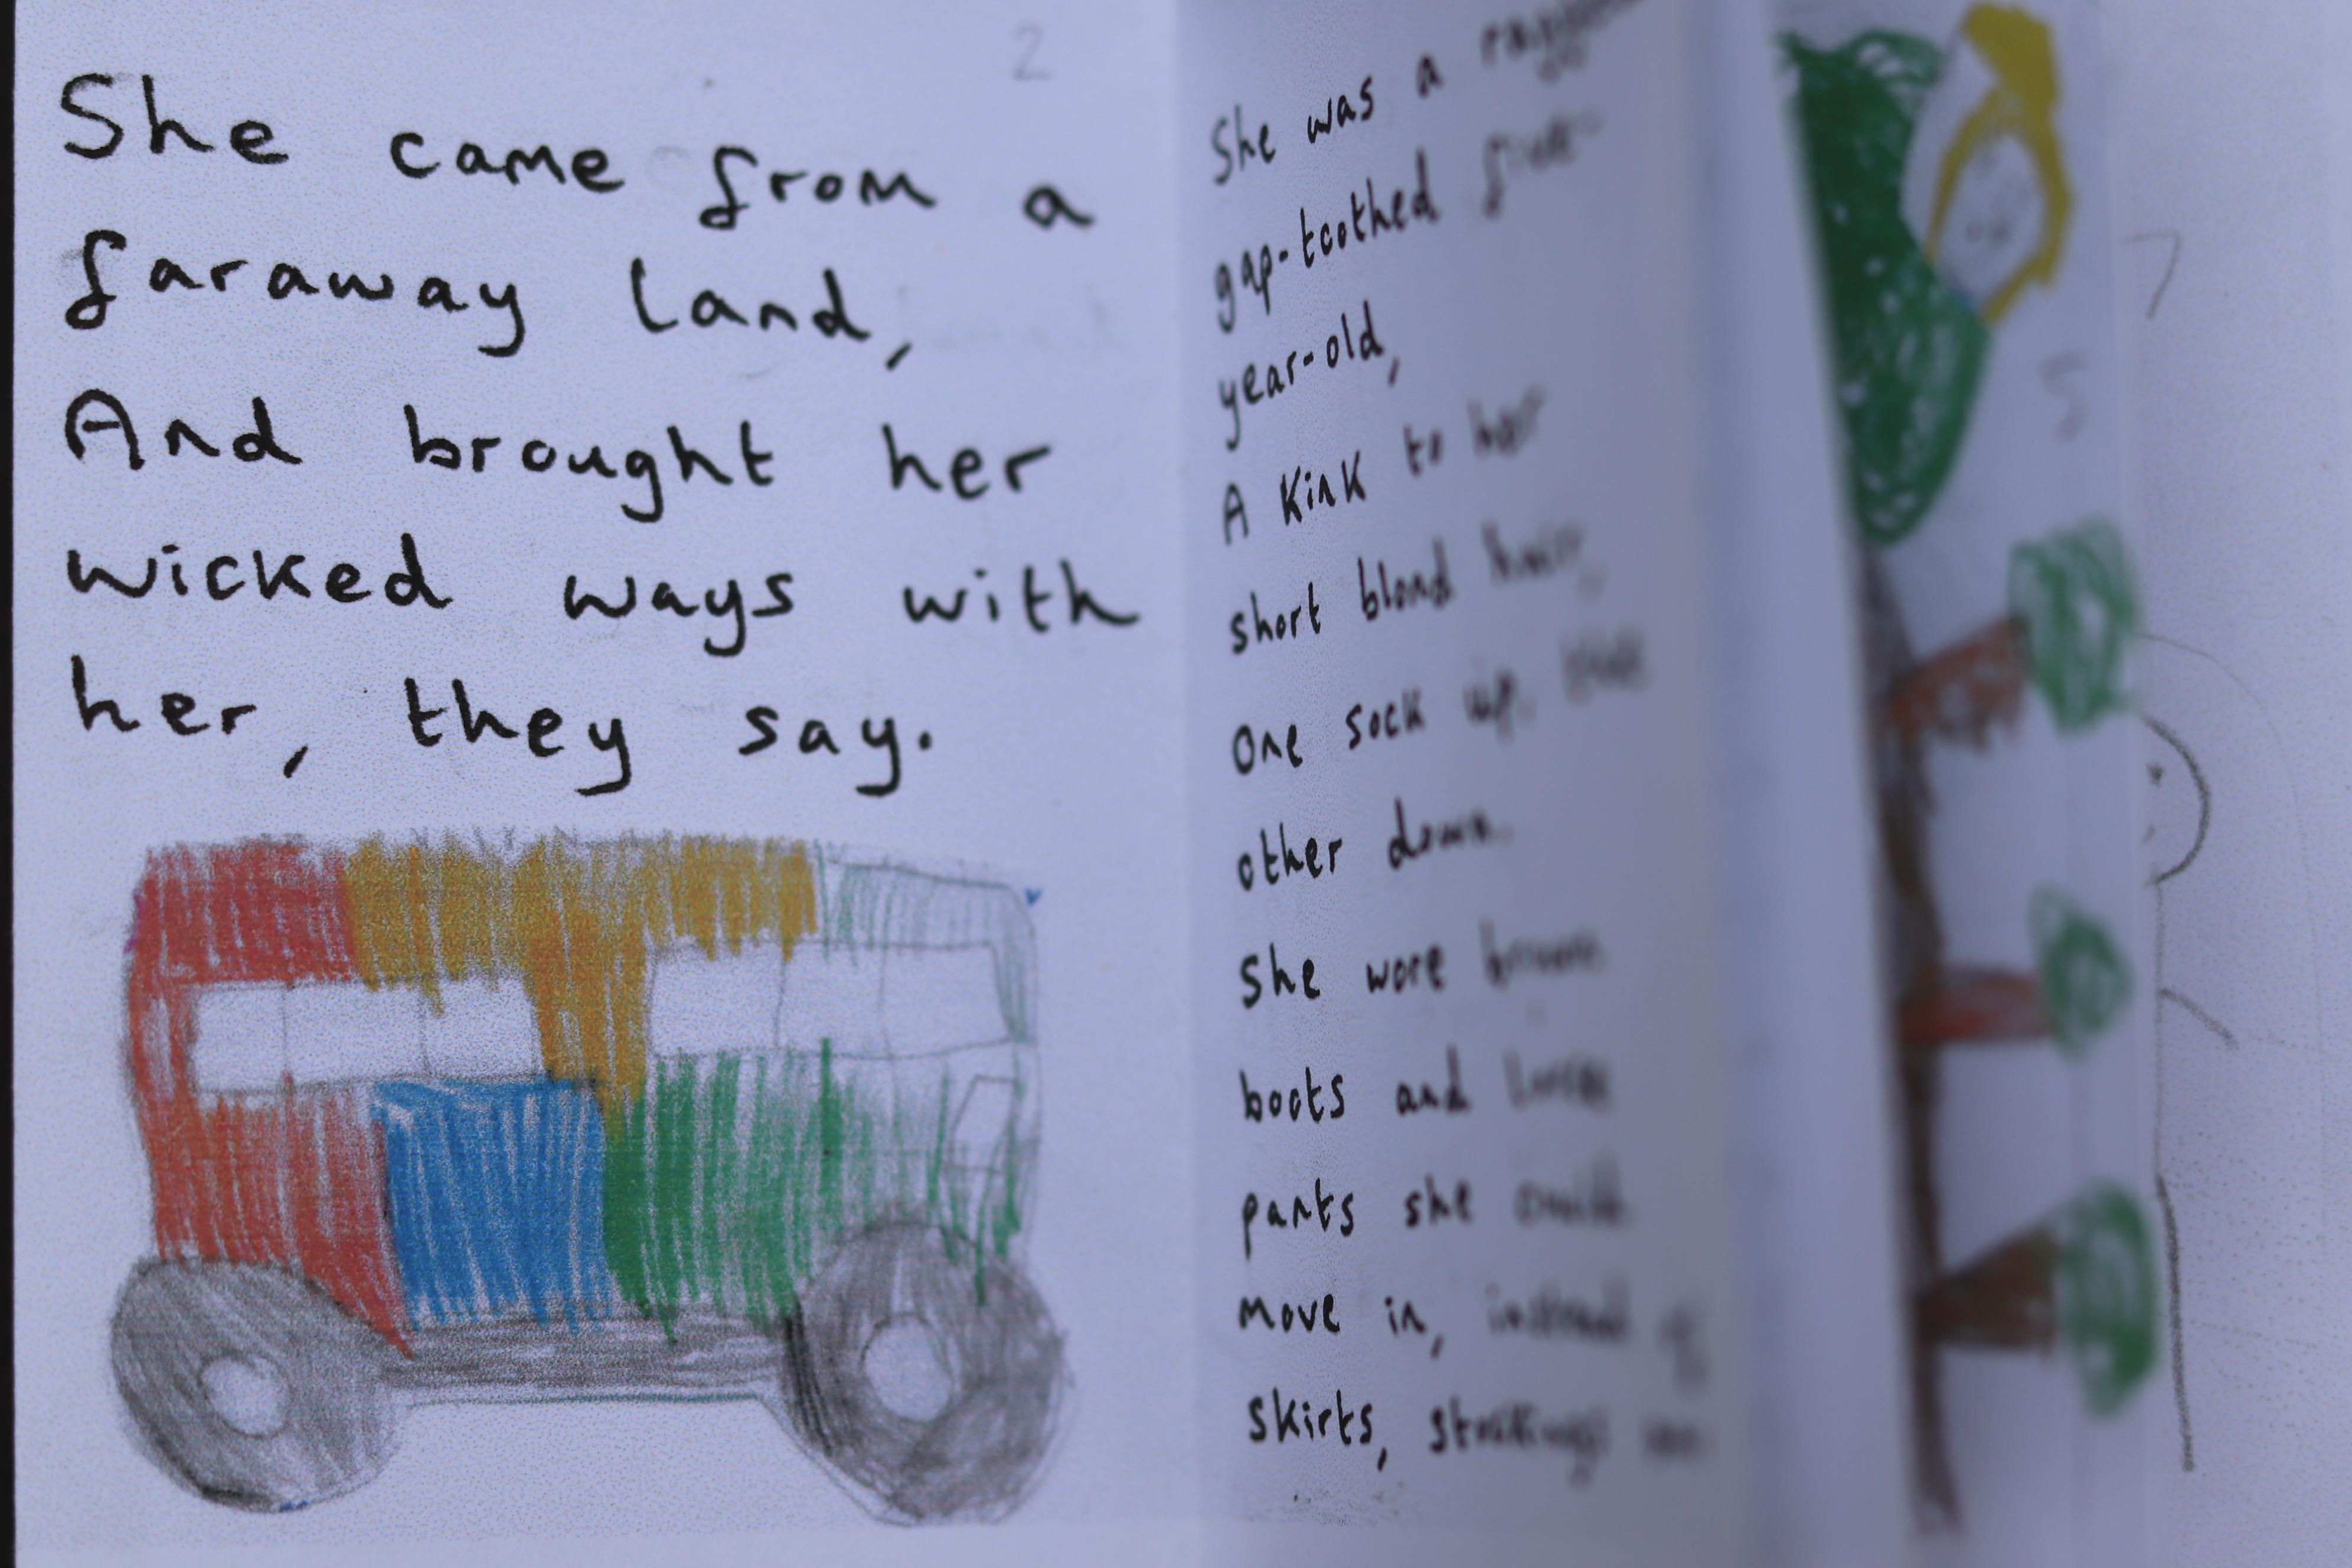 2
She came from a
faraway land,
And brought her
wicked ways with
her, they say.
She was a
gap-toothed five-
year-old,
A Kink to her
short blond hair,
One sock up, the
other down.
She wore brown
boots and
pants she could
move in, instead of
skirts, stockings
7
5